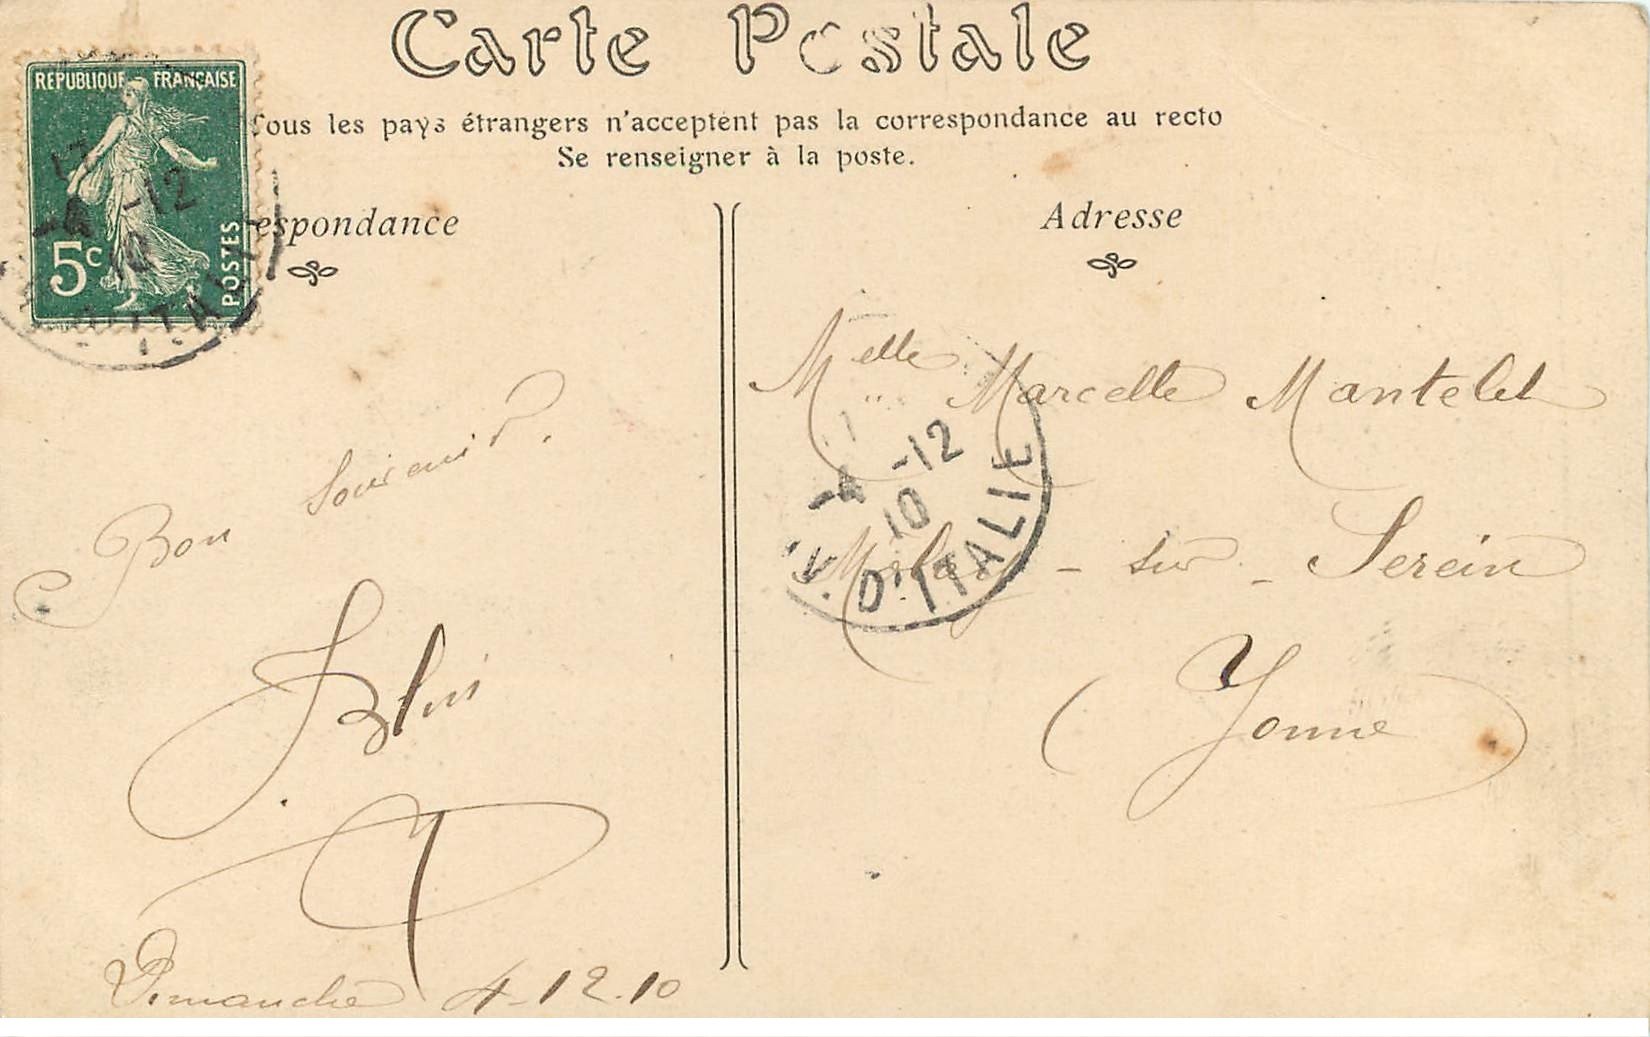 Carte Postale
Tous les pays étrangers n'acceptent pas la correspondance au recto
Se renseigner à la poste.
REPUBLIQUE FRANÇAISE
5c
POSTES
17
-4 -12
10
ITALIE
espondance
Bon Souvenir.
Dimanche 4-12.10
Adresse
Melle Marcelle Mantelet
-4 -12
10
AV. D'ITALIE
Molay - sur - Serein
(Yonne)